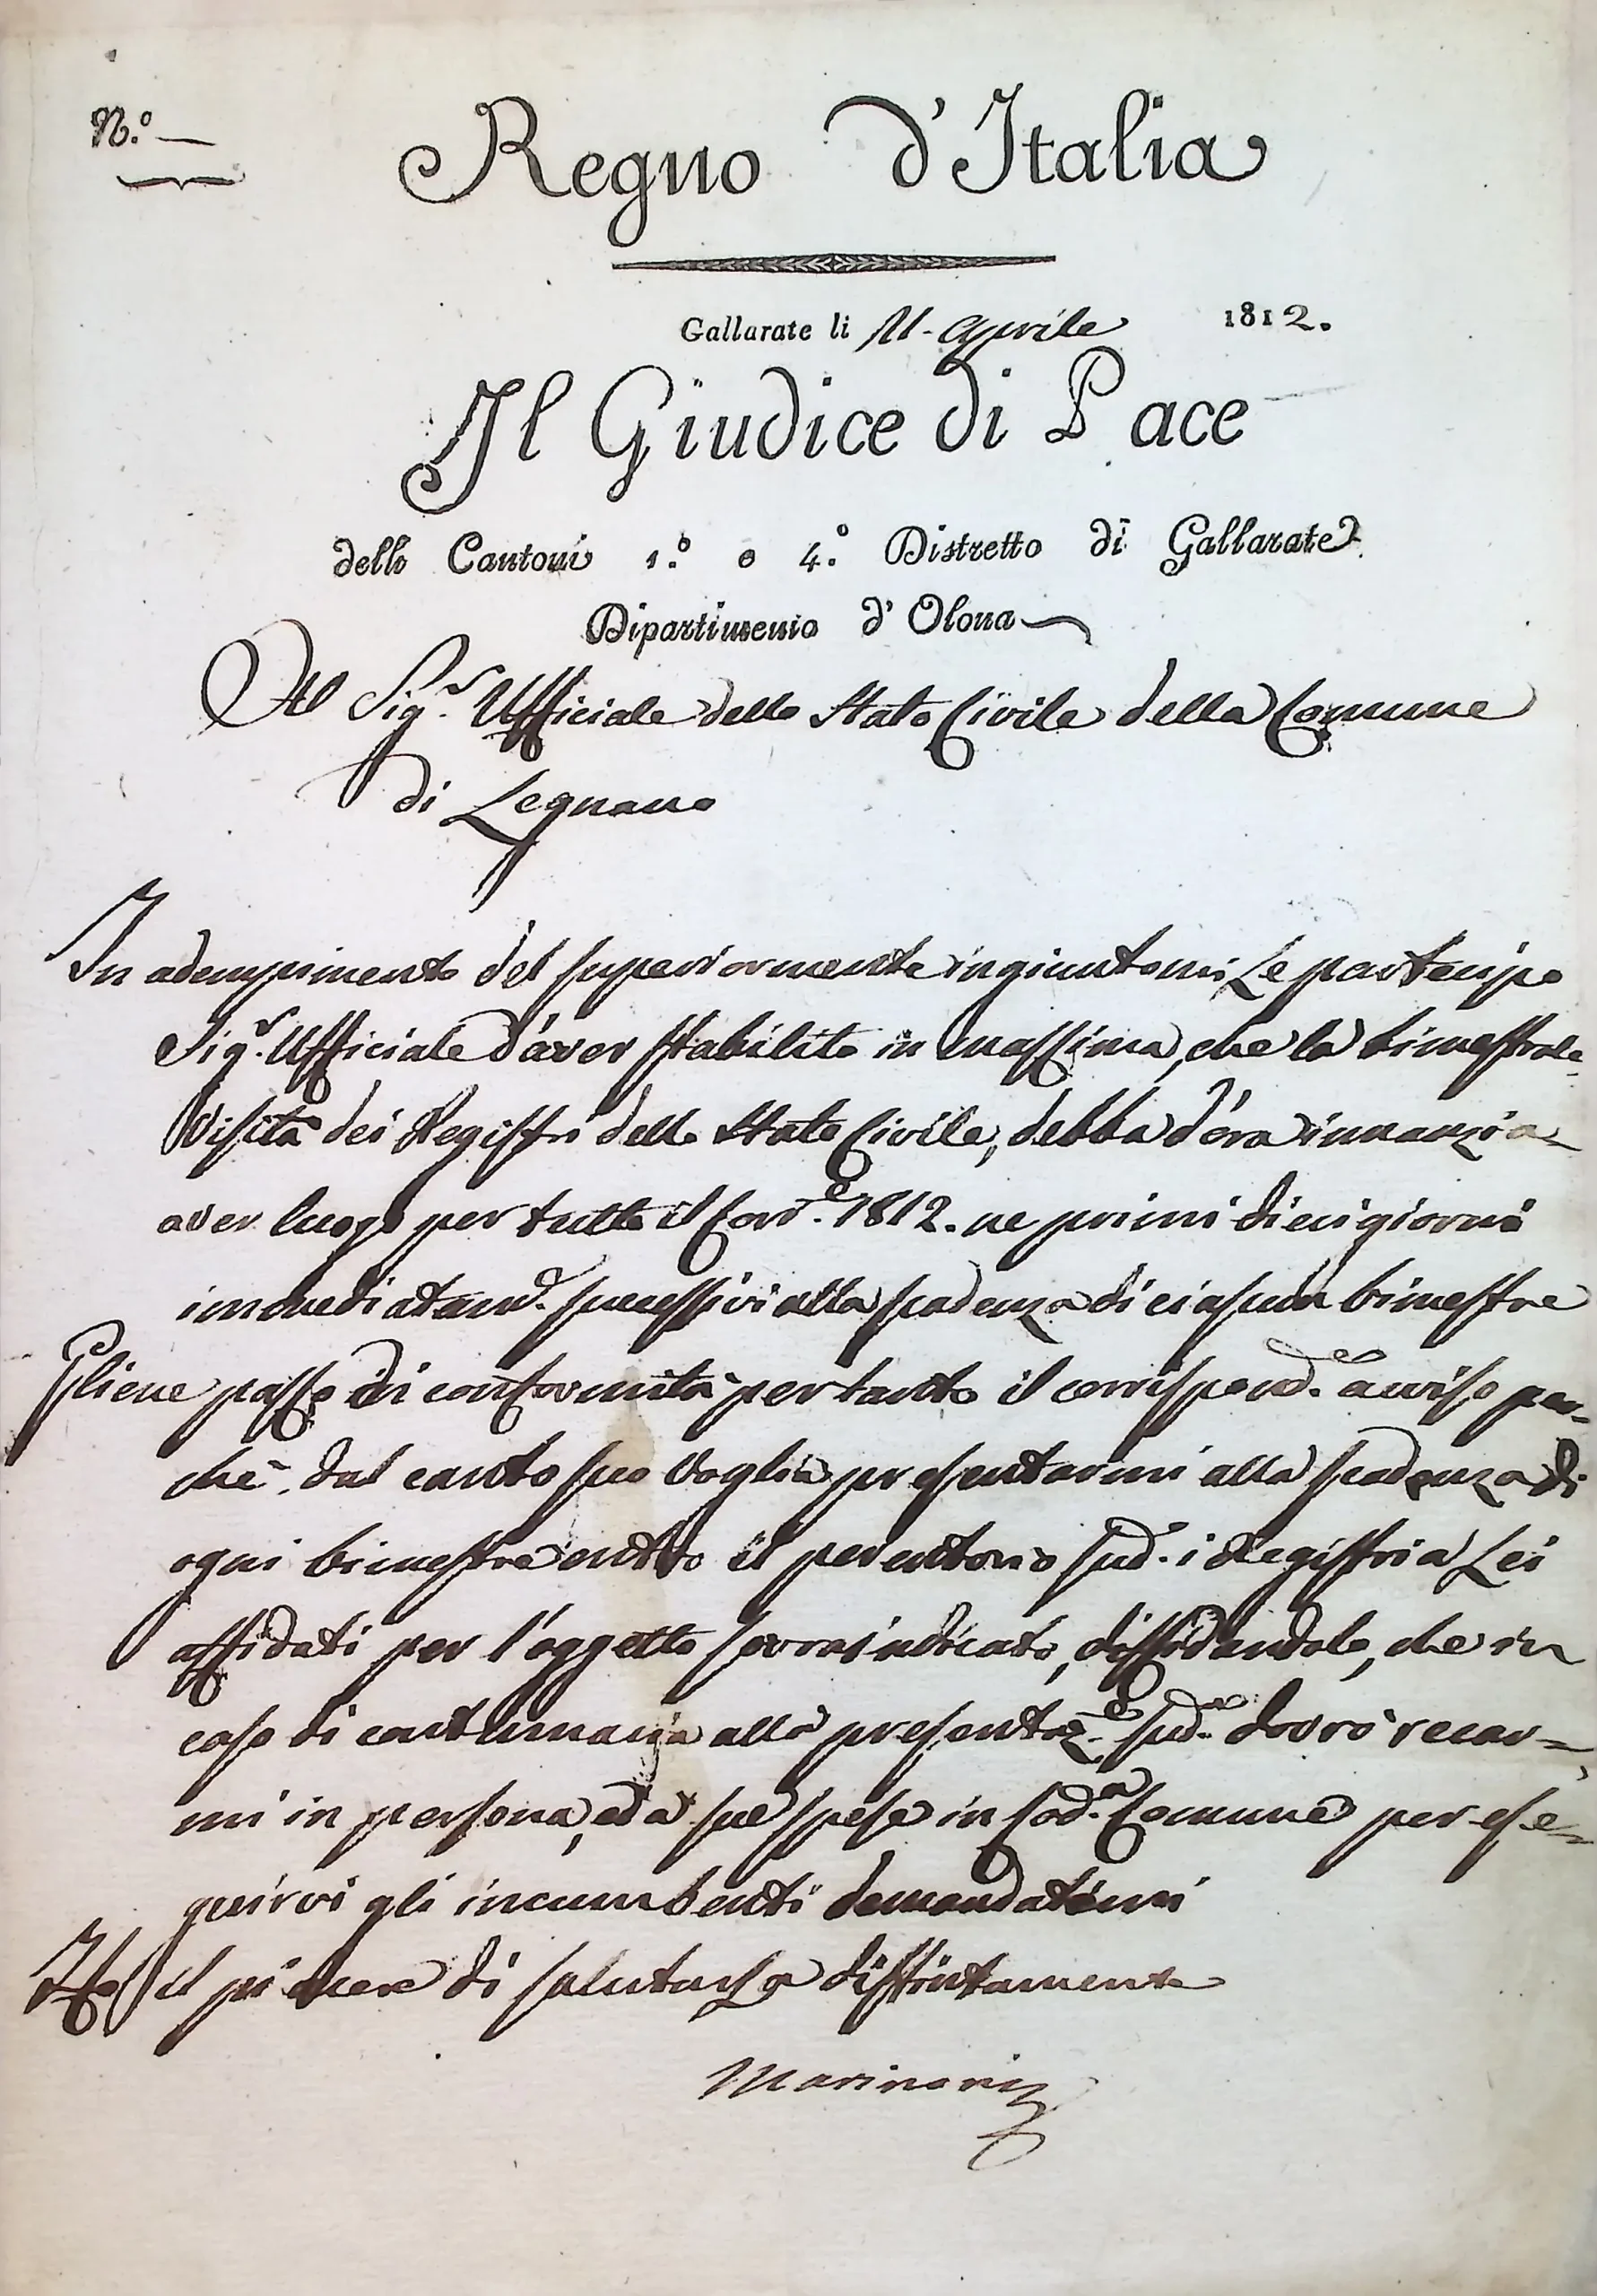 N.° —
Regno d'Italia
Gallarate li 11. Aprile 1812.
Il Giudice di Pace
delli Cantoni 1.° e 4.° Distretto di Gallarate
Dipartimento d'Olona
Al Sig.r Ufficiale dello Stato Civile della Comune
di Legnano
In adempimento del superiormente ingiuntomi Le partecipo
Sig.r Ufficiale d'aver stabilito in massima, che la bimestrale
Visita dei Registri dello Stato Civile, debba d'ora innanzi a
aver luogo per tutto il Corr.e 1812. ne primi dieci giorni
immediatam.e successivi alla scadenza di ciascun bimestre
Gliene passo di conformità pertanto il corrispond.e avviso per-
chè dal canto suo Voglia presentarmi alla scadenza di
ogni bimestre entro il perentorio sud.o i Registri a Lei
affidati per l'oggetto sovraindicato, diffidandolo, che in
caso di contumacia alla presentaz.e sud.a dovrò recar-
mi in persona, ed a sue spese in cod.a Comune per ese-
guirvi gli incumbenti demandatimi
Ho il piacere di salutarLa distintamente
Marinoni